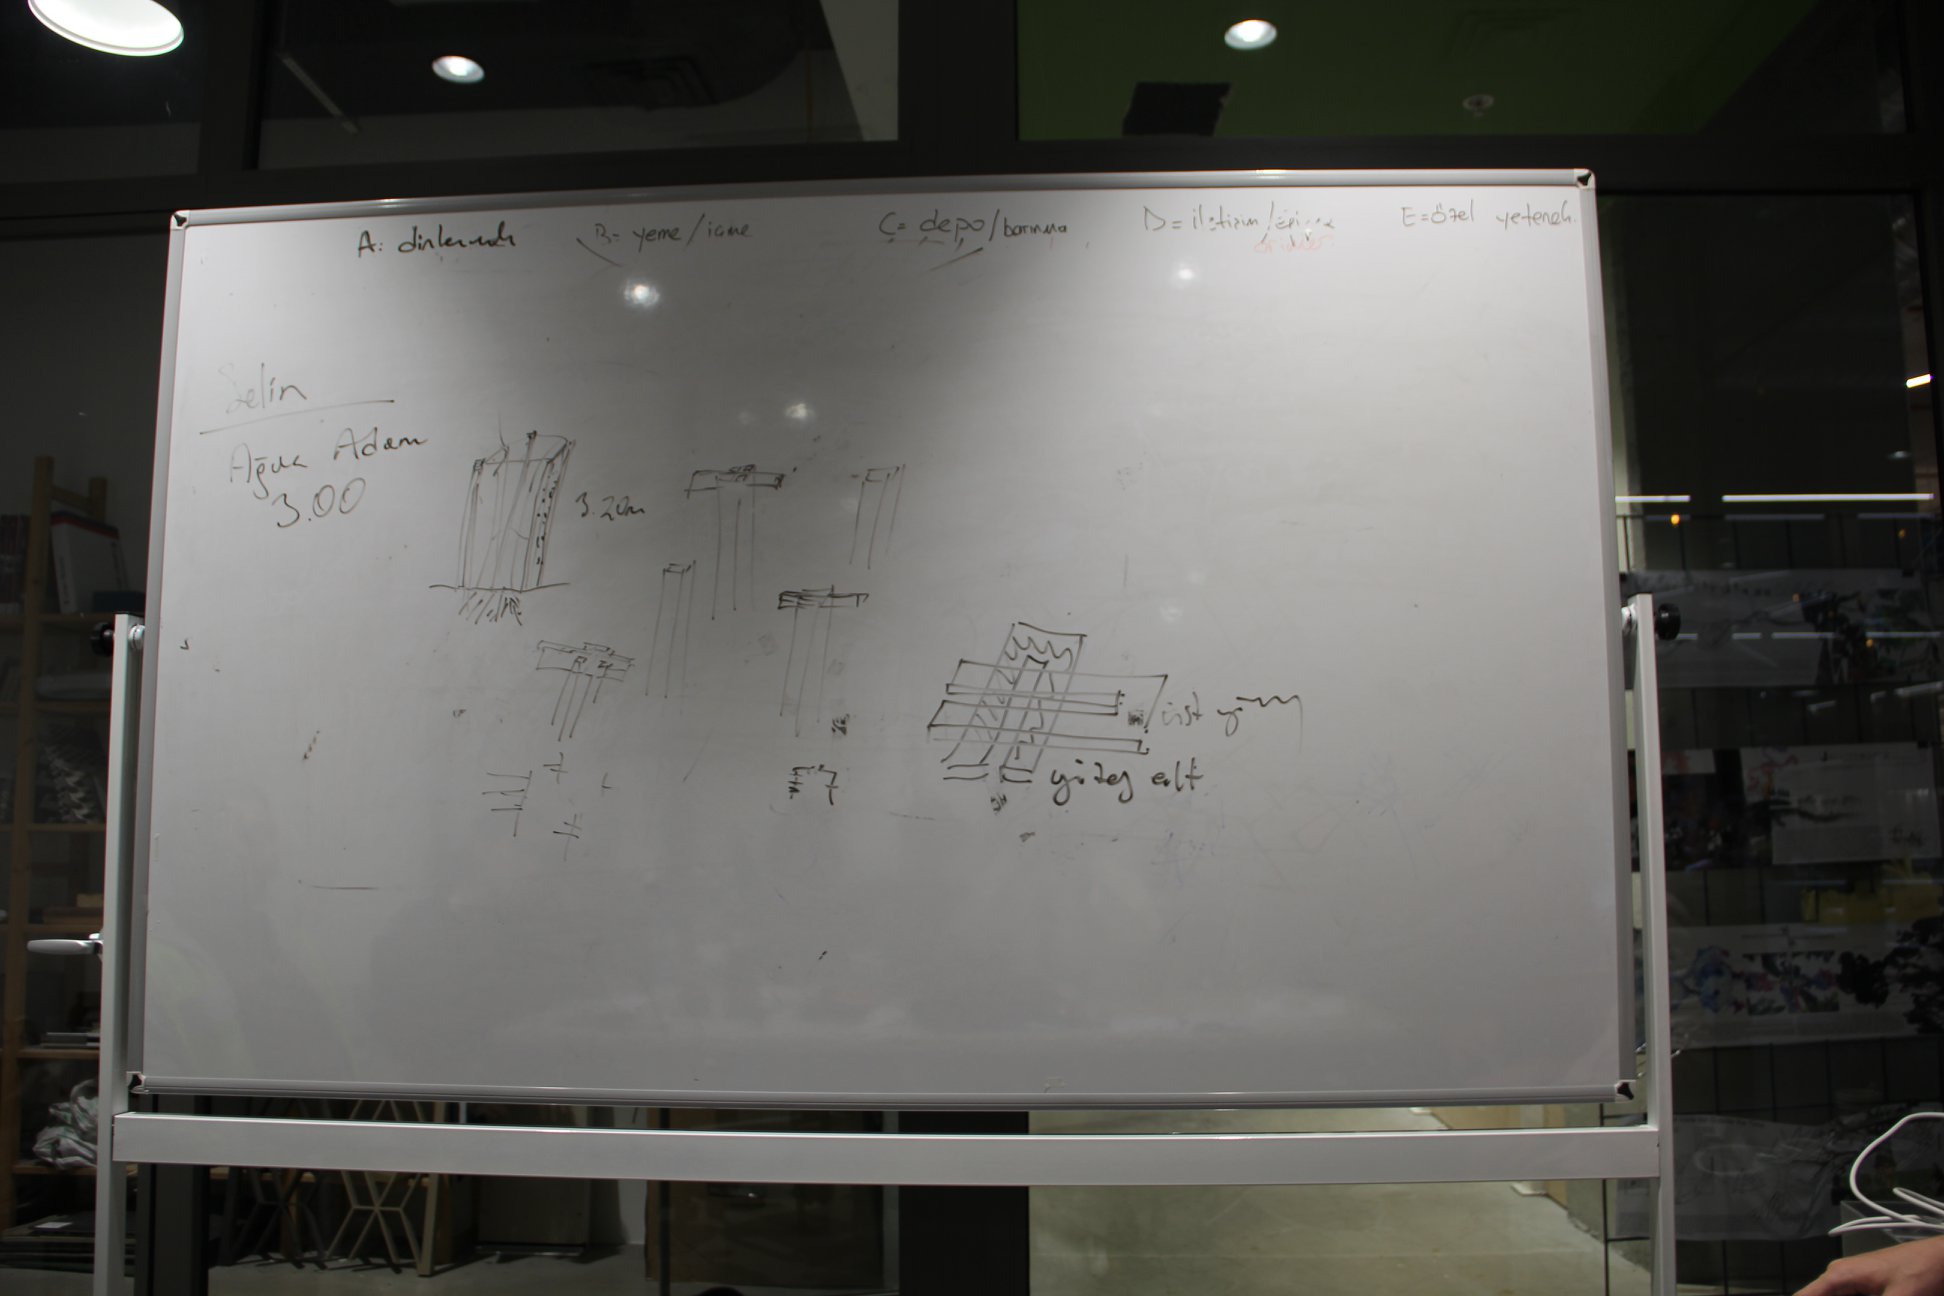 A: dinlenmek
B= yeme/içme
C= depo/barınma
D= iletişim/
E=özel yetenek
Selin
Adam
3.00
3.20m
üst
yüzey alt